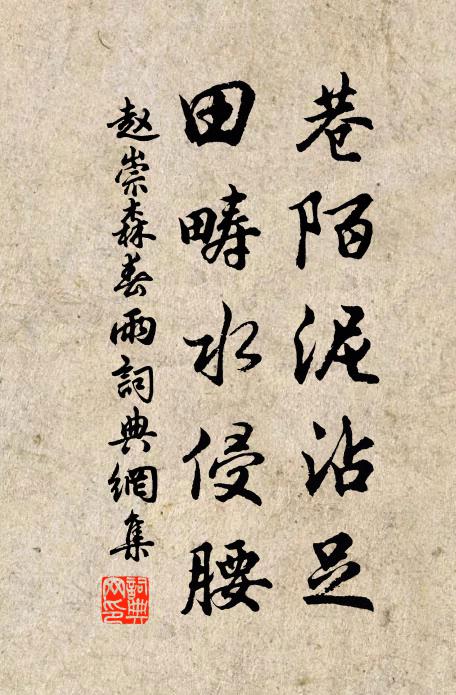 巷陌泥沾足
田畴水侵腰
赵崇森春雨詞典網集
詞典
网印